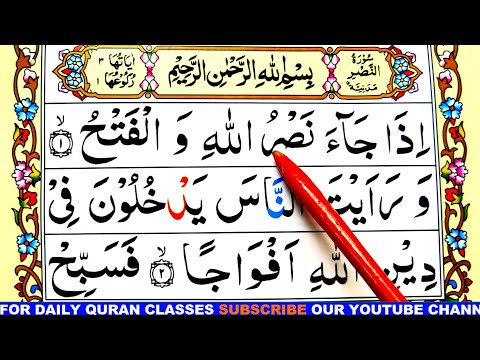 سُوْرَةُ
النَّصْرِ
مَدَنِيَّةٌ
بِسْمِ اللّٰهِ الرَّحْمٰنِ الرَّحِيْمِ
اٰيَاتُهَا ٣
رُكُوْعُهَا ١
اِذَا جَآءَ نَصْرُ اللّٰهِ وَ الْفَتْحُ ۙ ١
وَ رَاَيْتَ النَّاسَ يَدْخُلُوْنَ فِيْ
دِيْنِ اللّٰهِ اَفْوَاجًا ۙ ٢ فَسَبِّحْ
FOR DAILY QURAN CLASSES SUBSCRIBE OUR YOUTUBE CHANN